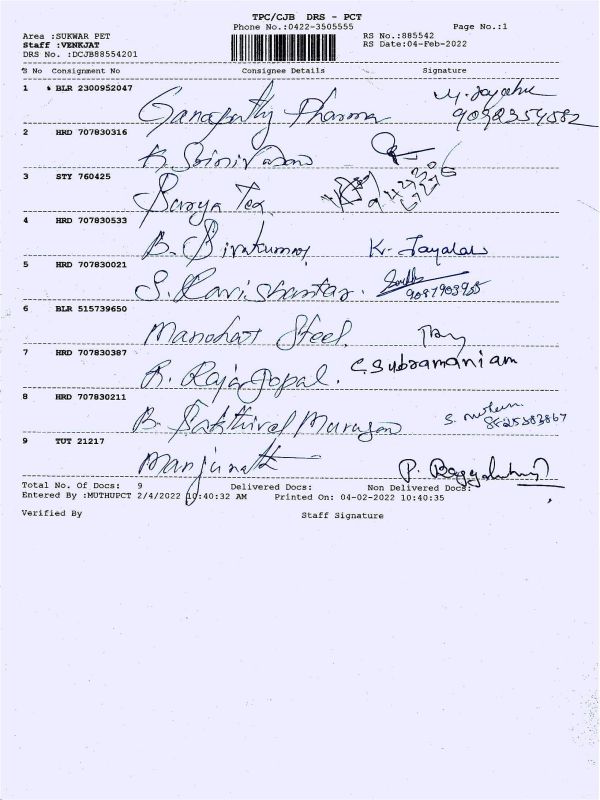 TPC/CJB DRS - PCT
Phone No.:0422-3505555 Page No.:1
Area :SUKWAR PET RS No.:885542
Staff :VENKJAT RS Date:04-Feb-2022
DRS No. :DCJB88554201
S No Consignment No Consignee Details Signature
1 BLR 2300952047
Ganapathy Pharma
2 HRD 707830316
R. Srinivasan
3 STY 760425
Surya Tex
4 HRD 707830533
B. Sivakumar K. Jayalak
5 HRD 707830021
S. Ravishankar. 9087903955
6 BLR 515739650
Manohar Steel
7 HRD 707830387
R. Raja Gopal. C. Subramaniam
8 HRD 707830211
B. Sakthivel Murugan S.
9 TUT 21217
Manjunath P.
Total No. Of Docs: 9 Delivered Docs: Non Delivered Docs:
Entered By :MUTHUPCT 2/4/2022 10:40:32 AM Printed On: 04-02-2022 10:40:35
Verified By Staff Signature